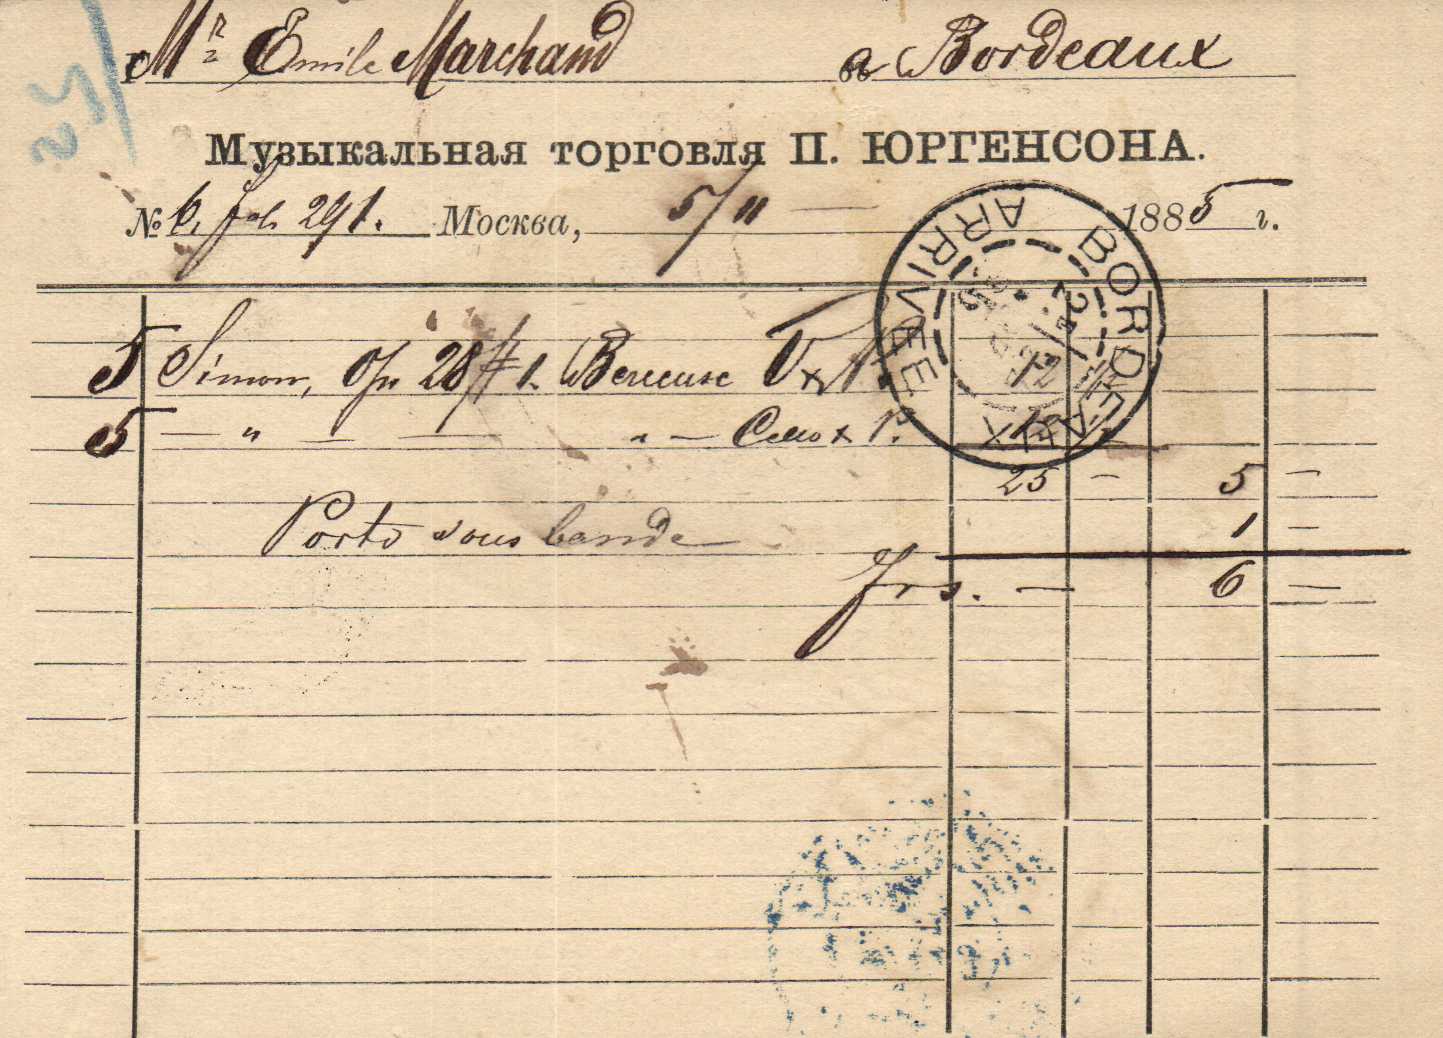 Mr Emile Marchand à Bordeaux
Музыкальная торговля П. ЮРГЕНСОНА.
№ fol. 291. Москва, 5/11 — 1885 г.
BORDEAUX ARRIVEE
5 Simon, Op 28 #1. Berceuse V x P.
5 — " — — " — Cello x P.
25 — 5 —
Porto sous bande 1 —
frs. — 6 —